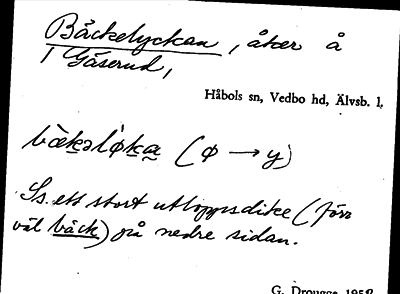 Bäckelyckan, åker å
Gåserud,
Håbols sn, Vedbo hd, Älvsb. l.
bæ̀kəlø̀ka (ø → y)
Ss. ett stort utloppsdike (förr
väl bäck) på nedre sidan.
G. Drougge 1958